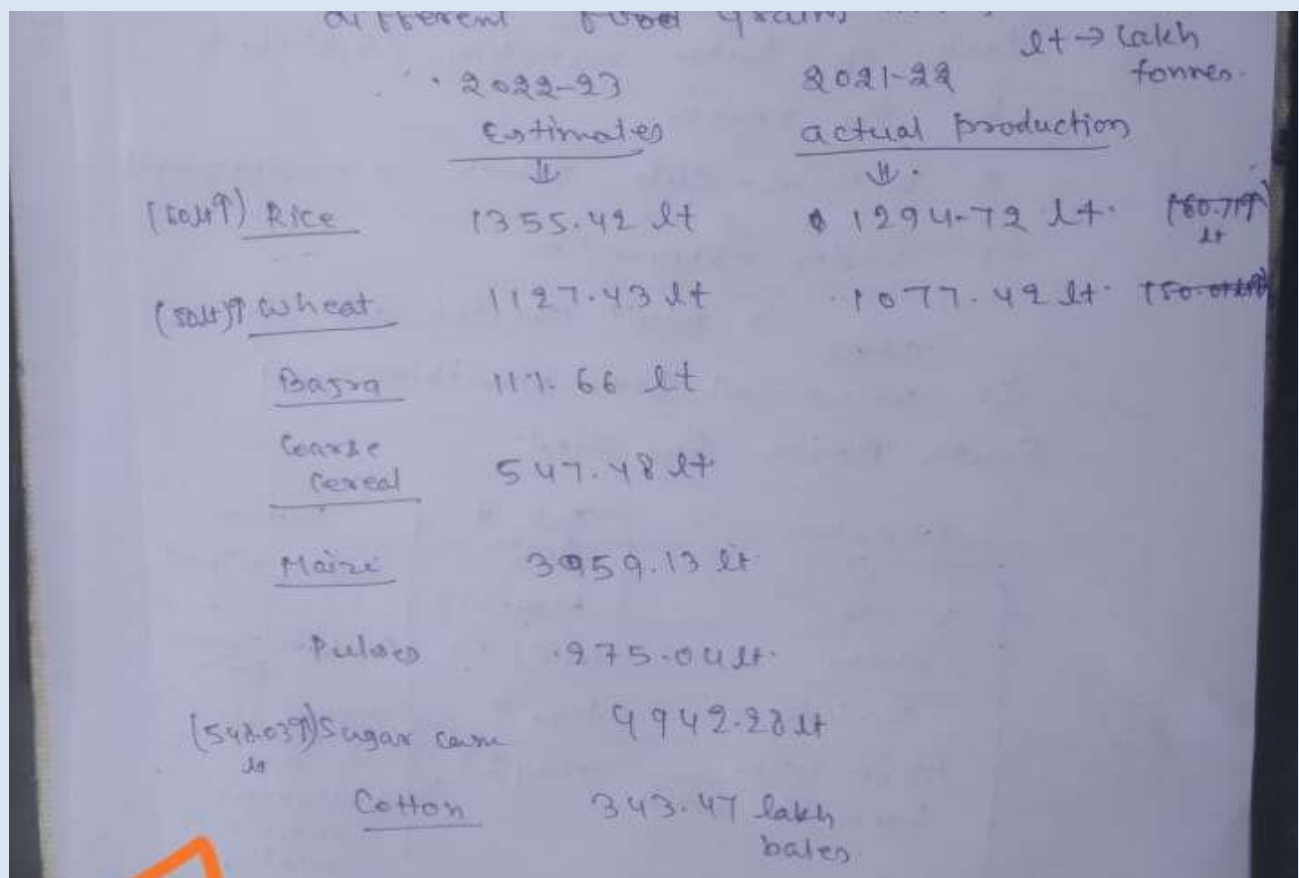 different food grains
lt → lakh
tonnes.
2022-23 2021-22
Estimates actual production
(60lt↑) Rice 1355.42 lt 1294.72 lt. (60.71↑)
lt
(50lt)↑ Wheat 1127.43 lt 1077.42 lt.
Bajra 111.66 lt
Coarse
Cereal 547.48 lt
Maize 359.13 lt
Pulses 275.04 lt.
Sugar cane 4942.28 lt
lt
Cotton 343.47 lakh
bales